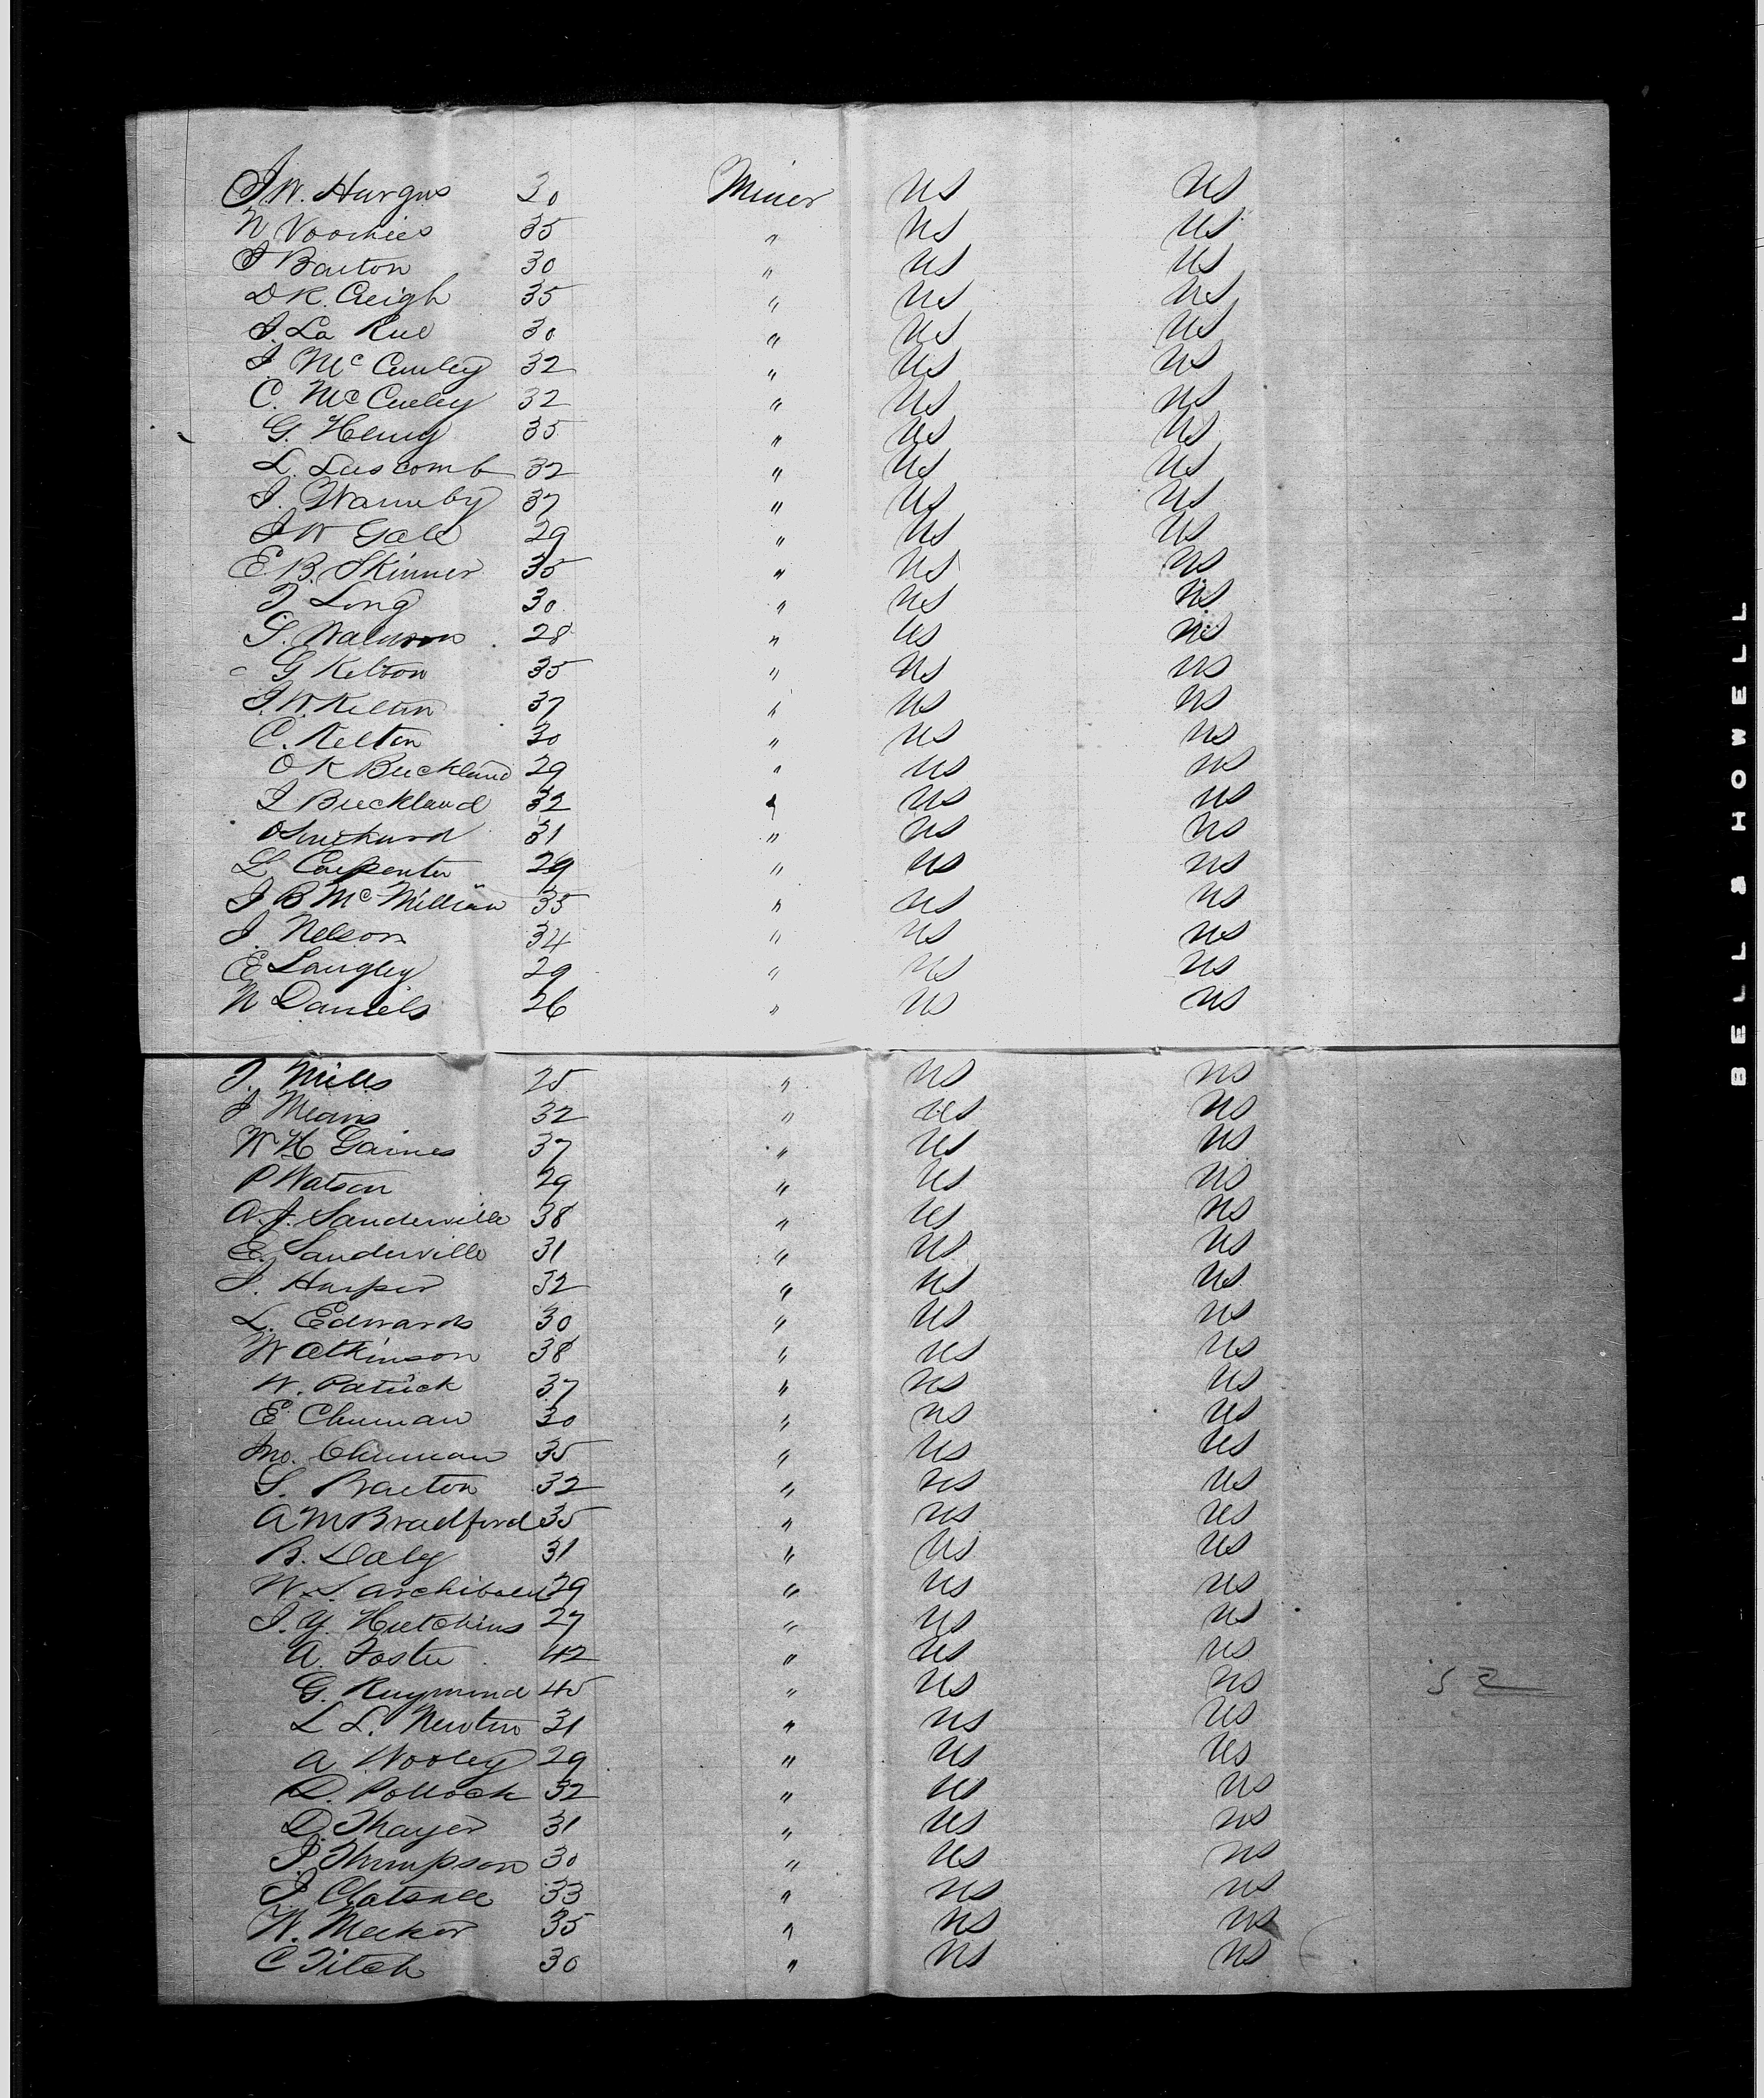 J W. Hargus 30 Miner US US
N Voorhies 35 " US US
J Barton 30 " US US
D K. Creigh 35 " US US
J. La Rue 30 " US US
J. McCauley 32 " US US
C. McCauley 32 " US US
G. Henry 35 " US US
L. Luscomb 32 " US US
J. Warmby 37 " US US
J W Gale 29 " US US
E. B. Skinner 35 " US US
J Long 30 " US US
S. 28 " US US
G Kelton 35 " US US
J. W. Kelton 37 " US US
C. Kelton 30 " US US
O K Buckland 29 " US US
J Buckland 32 " US US
31 " US US
L Carpenter 29 " US US
J B McMillian 35 " US US
J. Nelson 34 " US US
E Langley 29 " US US
N Daniels 26 " US US
J. Mills 25 " US US
J Means 32 " US US
W H Gaines 37 " US US
P Watson 29 " US US
A. J. Sanderville 38 " US US
E. Sanderville 31 " US US
J. Harper 32 " US US
L. Edwards 30 " US US
W Atkinson 38 " US US
W. Patrick 37 " US US
E Chuman 30 " US US
Jno. Chuman 35 " US US
S. Barton 32 " US US
A M Bradford 35 " US US
B. Daly 31 " US US
W. S. Archibald 29 " US US
J. Y. Hutchins 27 " US US
A. Foster 42 " US US
G. Raymond 45 " US US 52
L L. Newton 31 " US US
A Wooley 29 " US US
D. Pollock 32 " US US
D. Thayer 31 " US US
J. Thompson 30 " US US
J. 33 " US US
W. Meeker 35 " US US
C Fitch 30 " US US
BELL & HOWELL